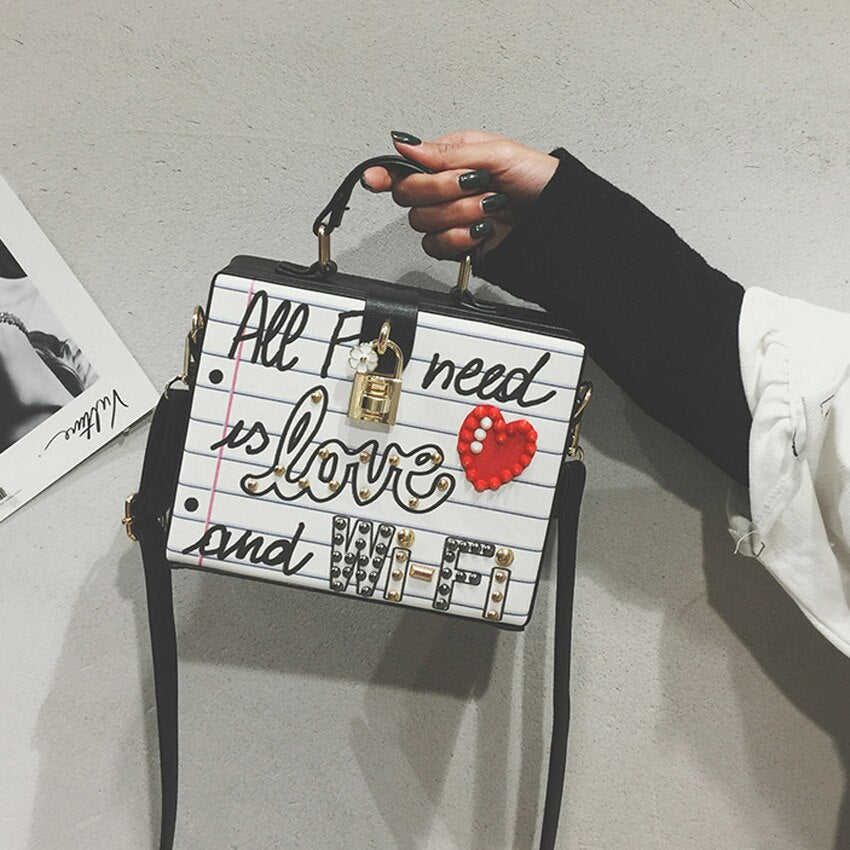 All I need
is love
and Wi-Fi
Vulture